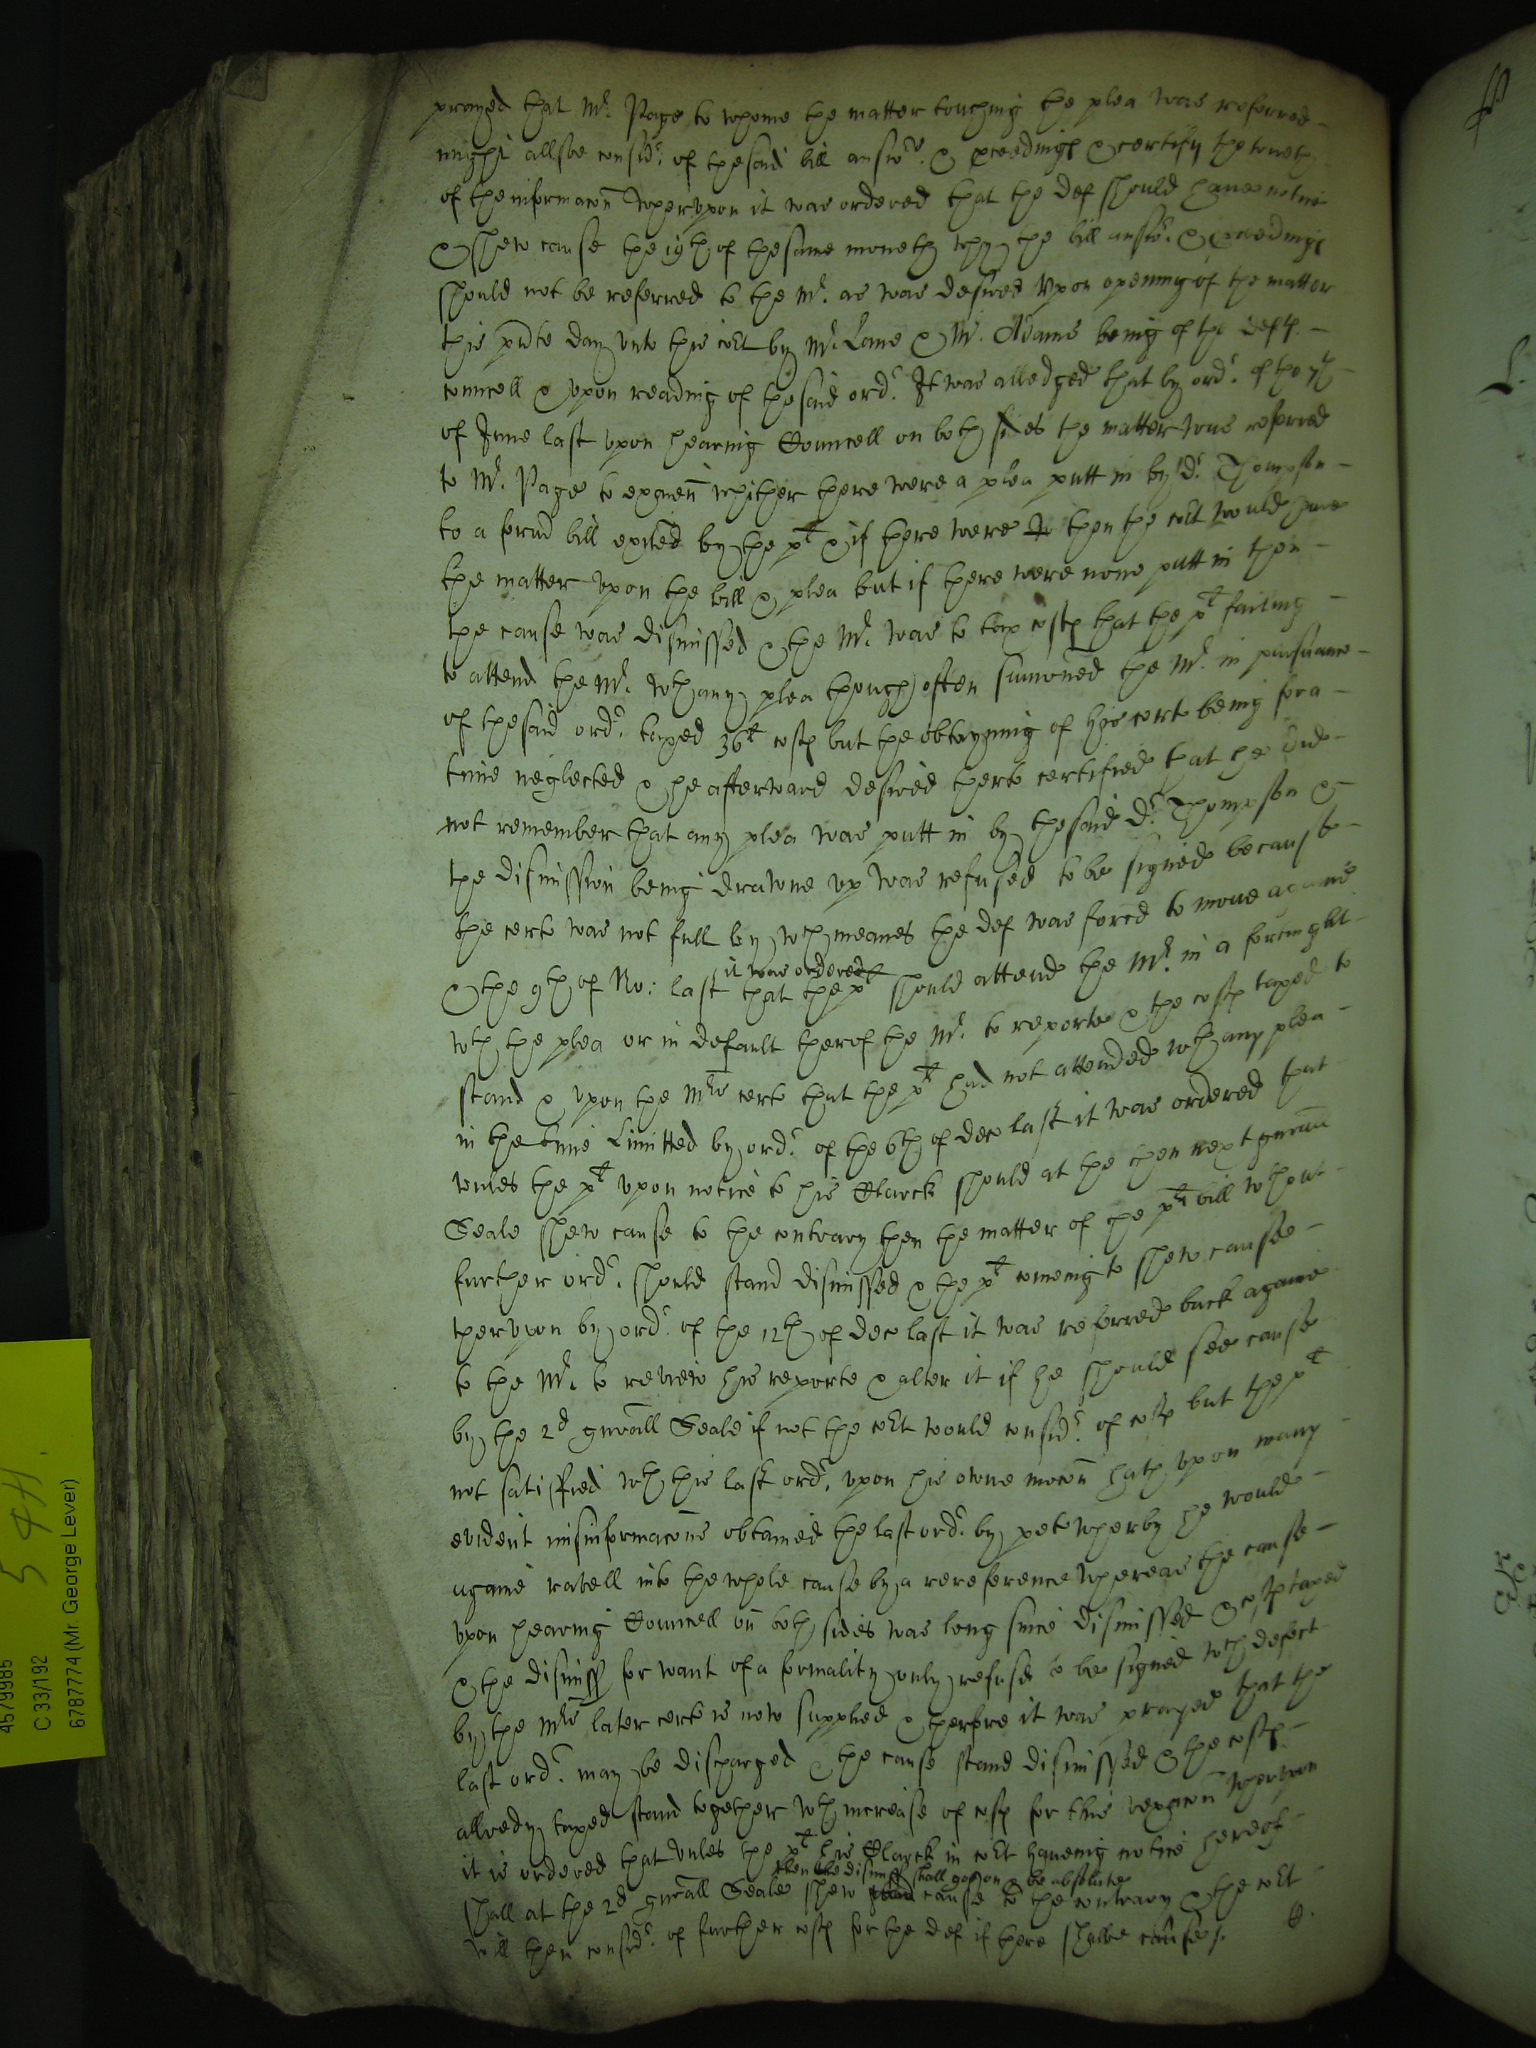 prayed that Mr. Page to whome the matter touching the plea was referred
might allsoe considr. of the said bill answr. & proceedings & certify the trueth
of the informacon wherupon it was ordered that the def should haue notice
& shew cause the 19th of the same moneth why the bill answr. & proceedings
should not be referred to the Mr. as was desired Upon opening of the matter
this pnte day vnto this cort by Mr. Lane & Mr. Adams being of the defts
councell & vpon reading of the said ordr. It was alledged that by ordr. of the 7th
of June last vpon hearing Councell on both sides the matter was referred
to Mr. Page to exmen whither there were a plea putt in by Dr. Thompson
to a former bill exited by the plt & if there were so then the cort would haue
the matter vpon the bill & plea but if there were none putt in then
the cause was dismissed & the Mr. was to tax costs that the plt failing
to attend the Mr. wth any plea though often summoned the Mr. in pursuance
of the said ordr. taxed 36s costs but the obtayning of his certe being for a
time neglected & he afterward desired therto certified that he did
not remember that any plea was putt in by the said Dr. Thompson &
the dismission being drawne vp was refused to be signed because
the certe was not full by wch meanes the def was forced to moue againe
it was ordered
& the 9th of No: last that the plt should attend the Mr. in a fortnight
wth the plea or in default therof the Mr. to reporte & the costs taxed to
stand & vpon the Mrs certe that the plt had not attended wth any plea
in the time limitted by ordr. of the 6th of dec last it was ordered that
vnles the plt vpon notice to his Clarck should at the then next gnrall
Seale shew cause to the contrary then the matter of the plts bill wthout
further ordr. should stand dismissed & the plt comeing to shew cause
thervpon by ordr. of the 12th of dec last it was referred back againe
to the Mr. to reuiew his reporte & alter it if he should see cause
by the 2d gnrall Seale if not the cort would considr. of costs but the plt
not satisfied wth this last ordr. vpon his owne mocon hath vpon many
evident misinformacons obtained the last ordr. by peto wherby he would
againe ravell into the whole cause by a rereference whereas the cause
vpon hearing Councell on both sides was long since dismissed & costs taxed
& the dismiss for want of a formality only refused to be signed wch defect
by the Mrs later certe is now supplied & therfore it was prayed that the
last ordr. may be discharged & the cause stand dismissed & the costs
allredy taxed stand together wth increase of costs for this vexacon wherupon
it is ordered that vnles the plt his Clarck in cort haueing notice hereof
then the dismiss shall goe on & be absolute
shall at the 2d gnrall Seale shew cause to the contrary & the cort
will then considr. of further costs for the def if there shalbe cause.
5 4H
4579985
C 33/192
6787774 (Mr. George Lever)